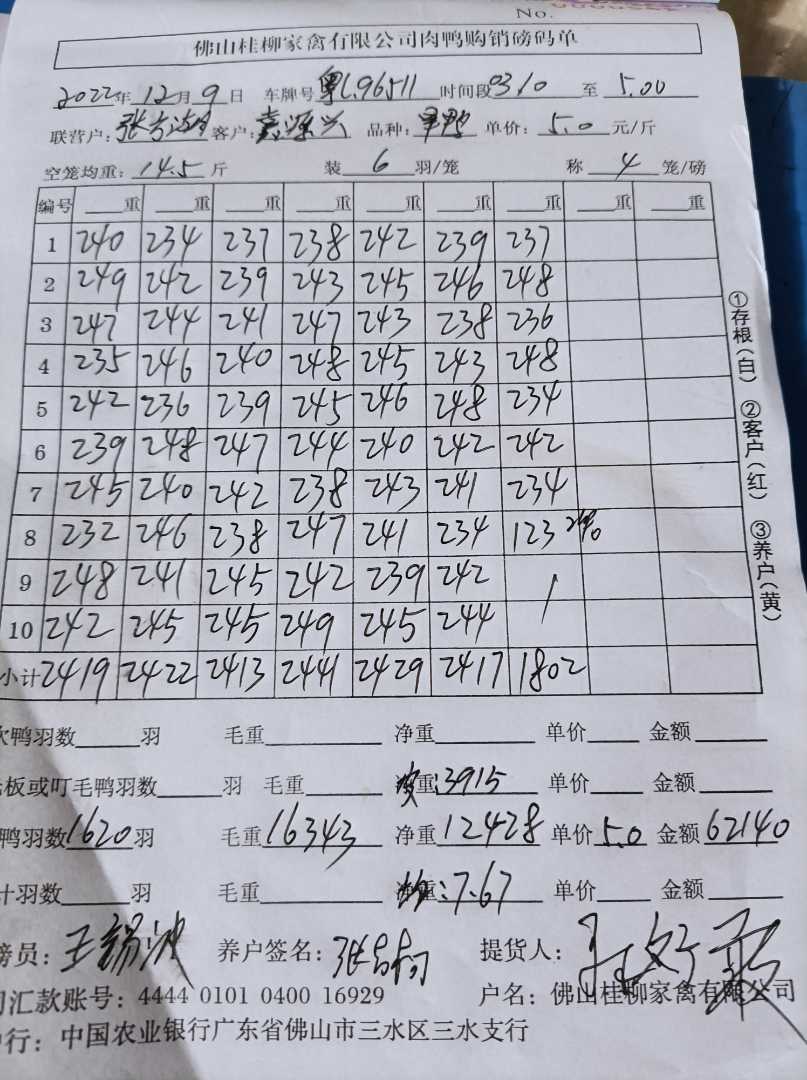 No.
佛山桂柳家禽有限公司肉鸭购销磅码单
2022年12月9日 车牌号粤L96511 时间段03.10 至 5.00
联营户: 客户:嘉源兴 品种: 单价:5.0元/斤
空笼均重:14.5斤 装6羽/笼 称4笼/磅
编号 重 重 重 重 重 重 重 重 重
1 240 234 237 238 242 239 237
2 249 242 239 243 245 246 248
3 247 244 241 247 243 238 236
4 235 246 240 248 245 243 248
5 242 236 239 245 246 248 234
6 239 248 247 244 240 242 242
7 245 240 242 238 243 241 234
8 232 246 238 247 241 234 123
9 248 241 245 242 239 242 /
10 242 245 245 249 245 244
小计 2419 2422 2413 2441 2429 2417 1802
①存根(白) ②客户(红) ③养户(黄)
次鸭羽数 羽 毛重 净重 单价 金额
板或叮毛鸭羽数 羽 毛重 重:3915 单价 金额
鸭羽数1620羽 毛重16343 净重12428 单价5.0 金额62140
计羽数 羽 毛重 重:7.67 单价 金额
磅员:王锡波 养户签名: 提货人:
司汇款账号: 4444 0101 0400 16929 户名: 佛山桂柳家禽有限公司
行: 中国农业银行广东省佛山市三水区三水支行